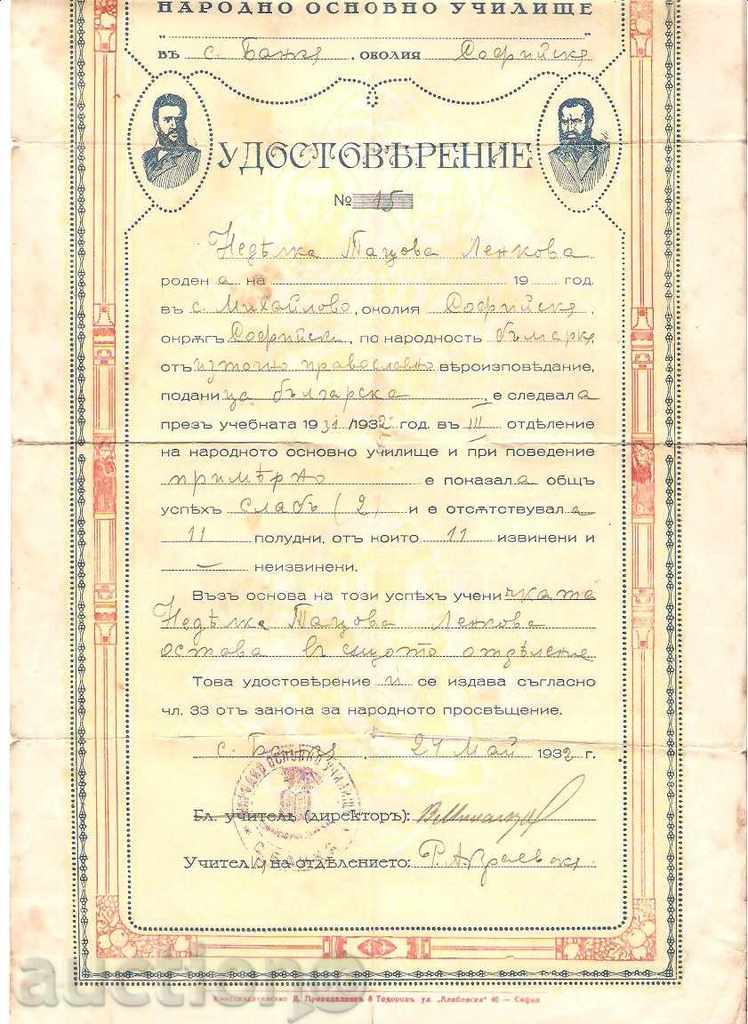 НАРОДНО ОСНОВНО УЧИЛИЩЕ
въ с. Баня, околия Софийска
УДОСТОВѢРЕНИЕ
№ 15
Недѣлка Тацова Ленкова
родена на 19 год.
въ с. Михайлово, околия Софийска,
окрѫгъ Софийски, по народность българка
отъ източно православно вѣроизповѣдание,
подани ца българска, е следвала
презъ учебната 1931/1932 год. въ III отдѣление
на народното основно училище и при поведение
примѣрно е показала общъ
успѣхъ Слабъ (2) и е отсѫтствувала
11 полудни, отъ които 11 извинени и
— неизвинени.
Възъ основа на този успѣхъ учени чката
Недѣлка Тацова Ленкова
остава въ сѫщото отдѣление
Това удостовѣрение и се издава съгласно
чл. 33 отъ закона за народното просвѣщение.
с. Баня, 24 Май 1932 г.
НАРОДНО ОСНОВНО УЧИЛИЩЕ
Гл. учитель (директоръ):
Учитель на отдѣлението:
Книгоиздателство 40 — София
auction